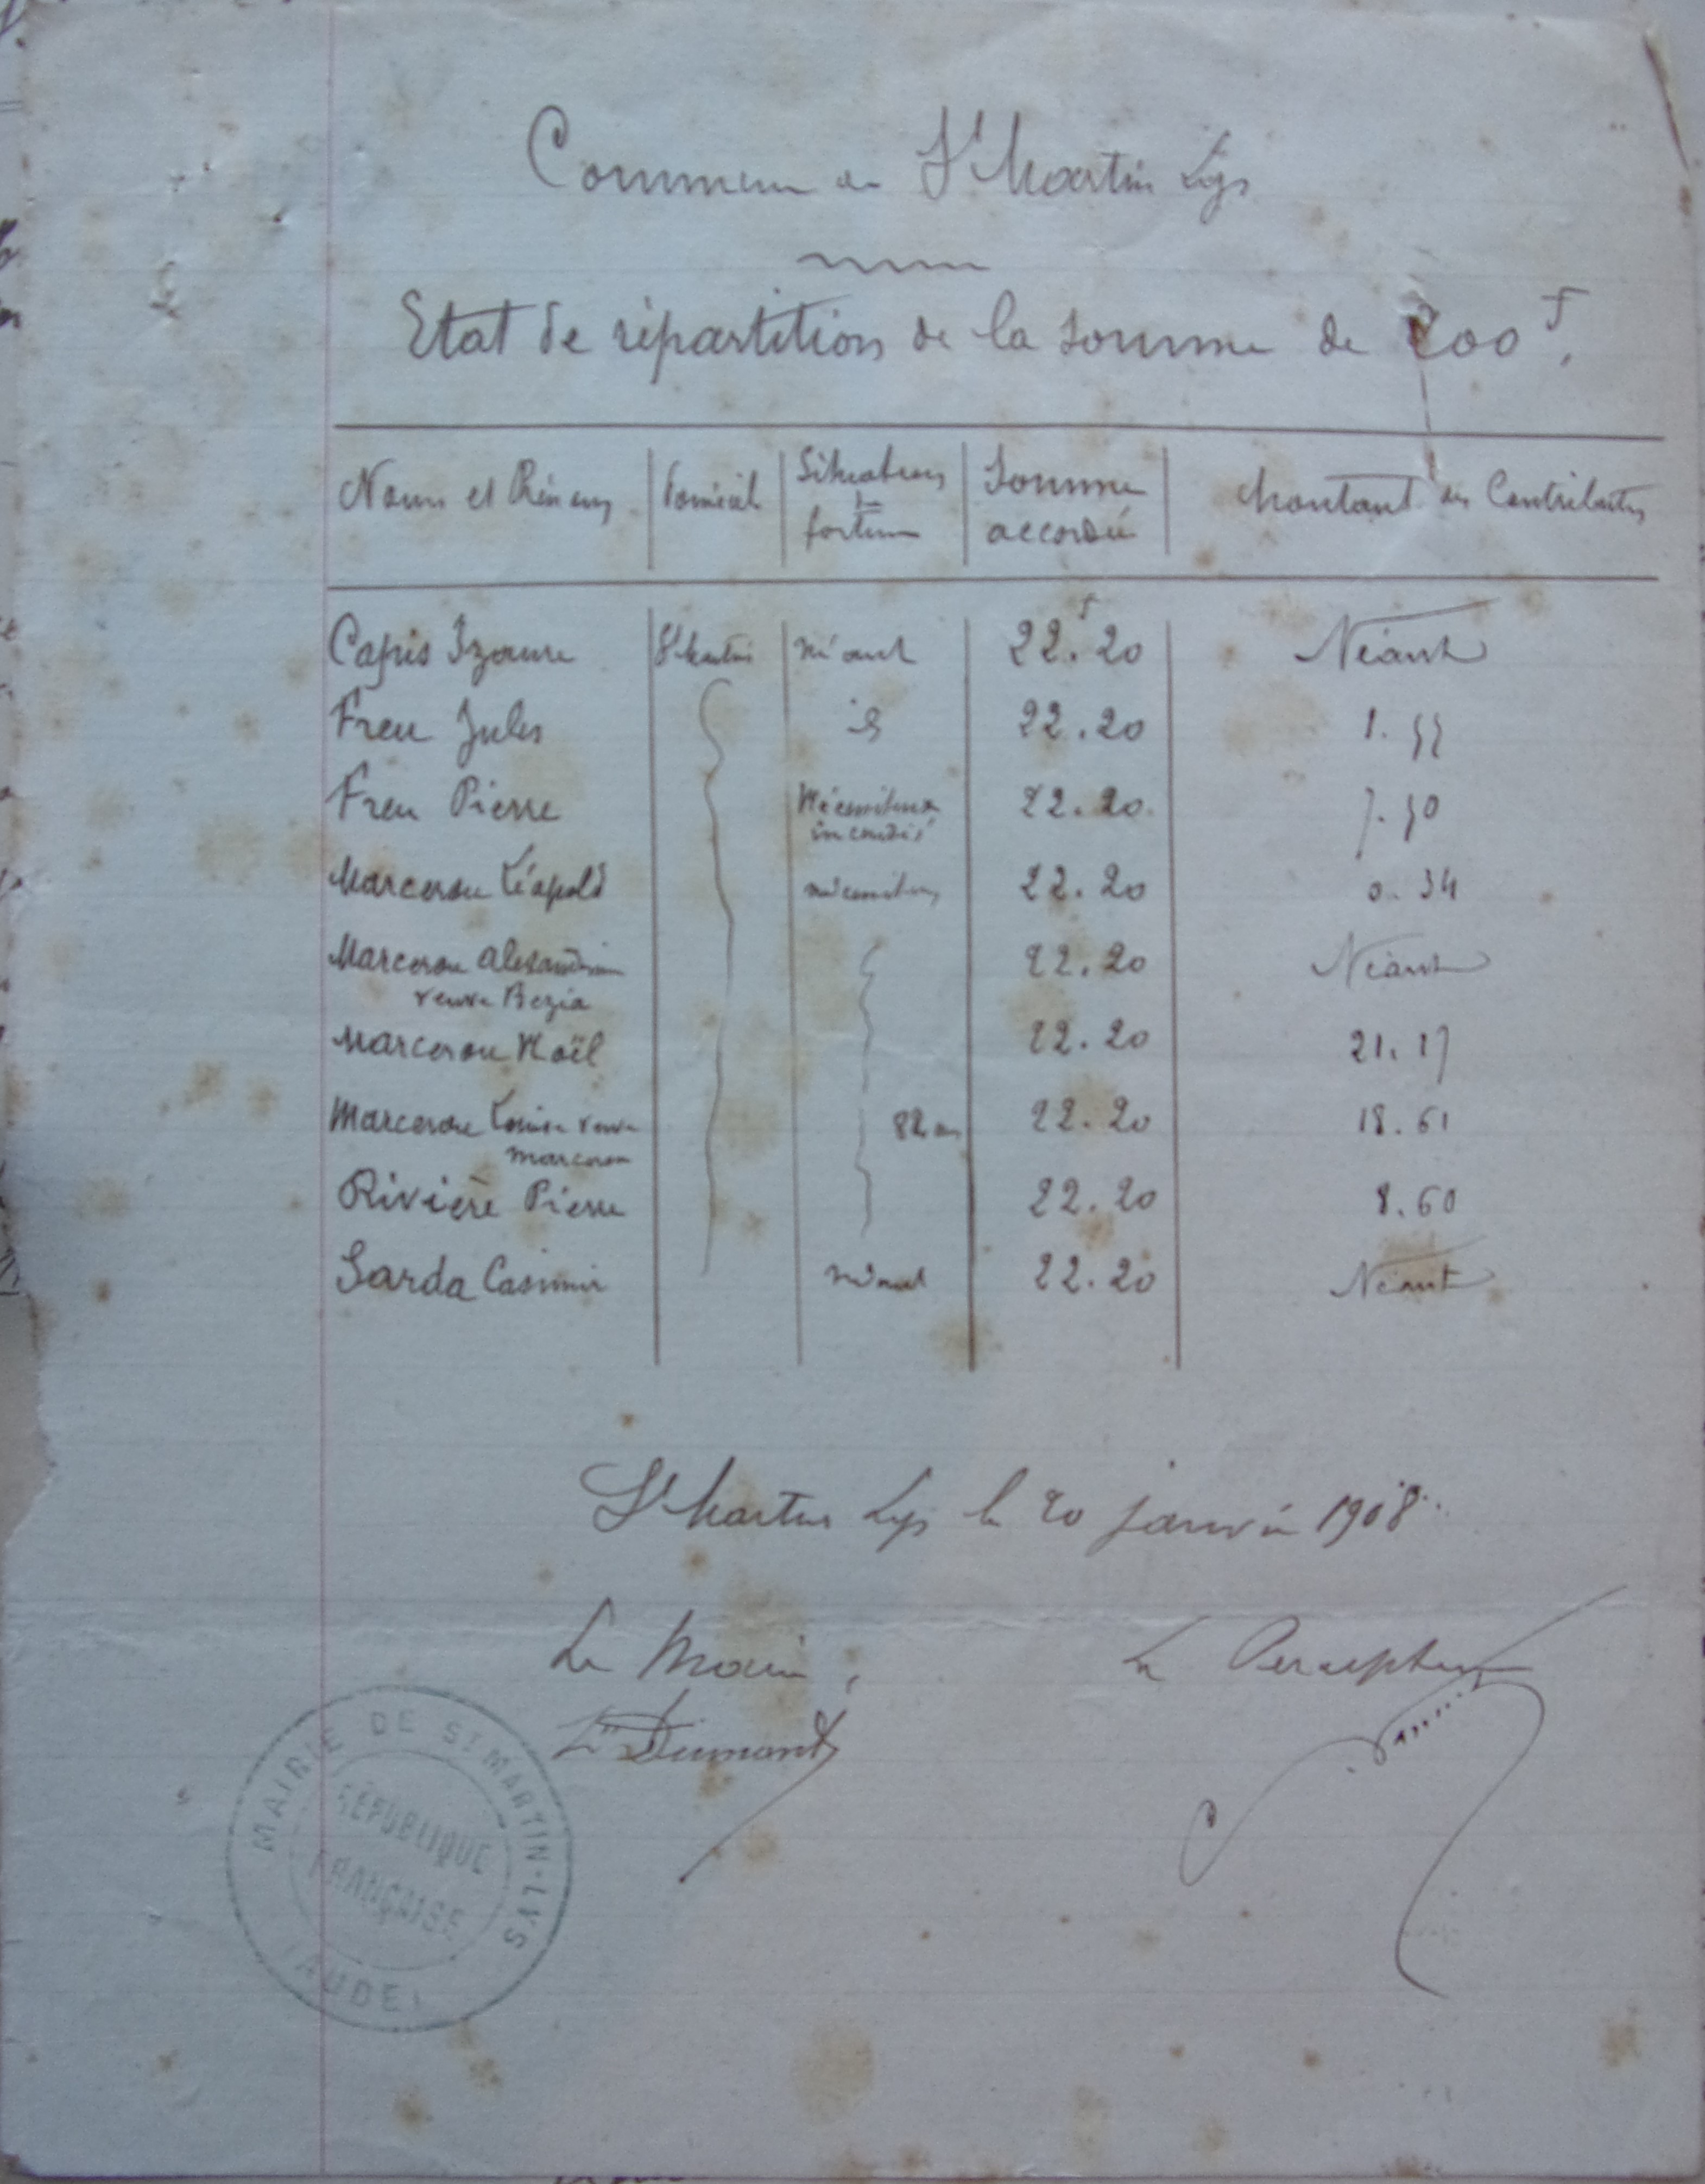 Commune de St Martin Lys
Etat de répartition de la somme de 200 f.
Noms et Prénoms | Domicile | Situation de fortune | Somme accordée | Montant des Contributions
Capis Izaure | St Martin | néant | 22.f 20 | Néant
Freu Jules | id | 22.20 | 1.55
Freu Pierre | Nécessiteux incendié | 22.20 | 7.50
Marcerou Léopold | nécessiteux | 22.20 | 0.34
Marcerou Alexandrine | 22.20 | Néant
veuve Bezia
Marcerou Noël | 22.20 | 21.17
Marcerou Louise veuve | 82 ans | 22.20 | 18.61
Marcerou
Rivière Pierre | 22.20 | 8.60
Sarda Casimir | néant | 22.20 | Néant
St Martin Lys le 20 janvier 1908
Le Maire, Le Percepteur
Dumont
MAIRIE DE ST MARTIN-LYS
RÉPUBLIQUE
FRANÇAISE
(AUDE)